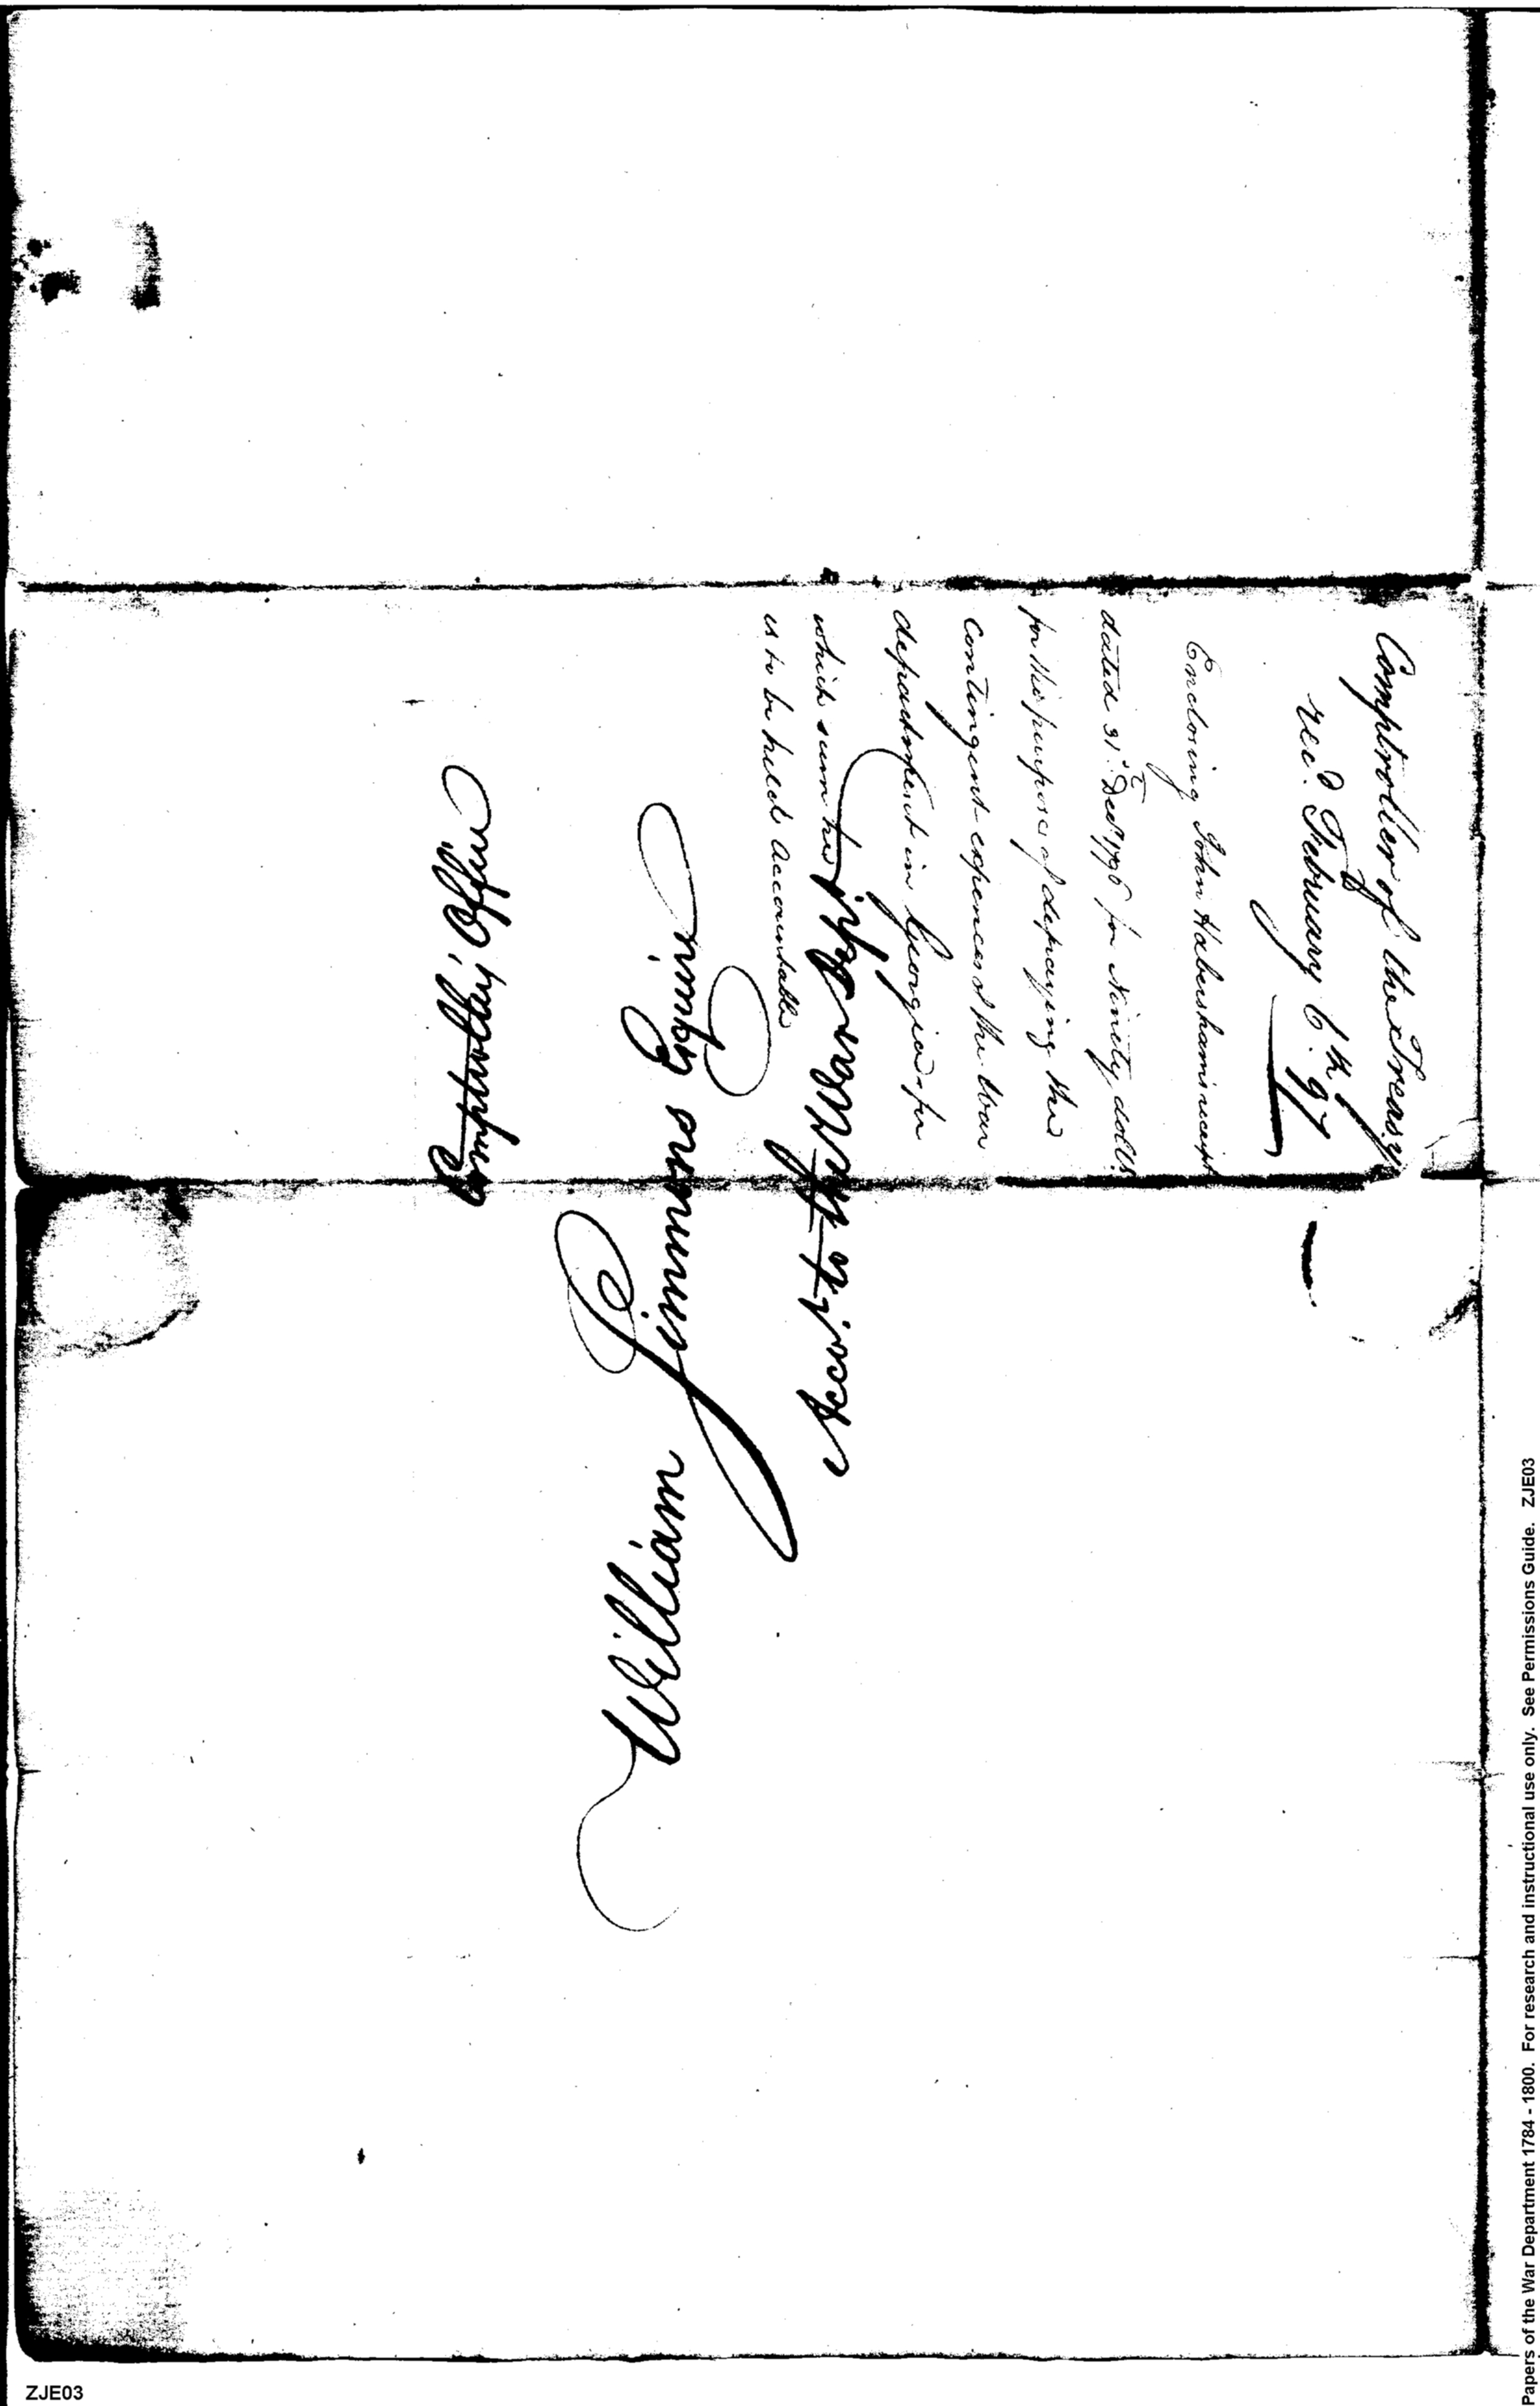 Comptroller of the Treasy
rec.d February 6.th 97
Enclosing John Habershams receipt
dated 31.st Dec.r 1796 for Ninety doll.s
for the purpose of defraying the
contingent expences of the War
department in Georgia for
which sum he
is to be held accountable
Comptroller's Office
William Simmons Esquire
Accot. of the War Dep.t
Papers of the War Department 1784 - 1800. For research and instructional use only. See Permissions Guide. ZJE03
ZJE03